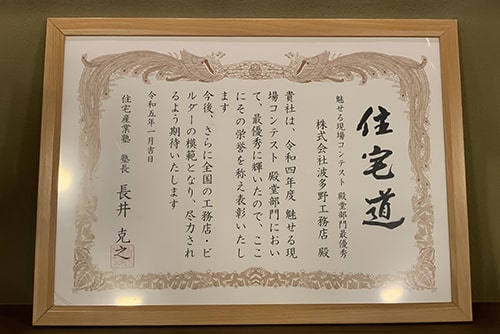 住宅道
魅せる現場コンテスト 殿堂部門最優秀
株式会社波多野工務店 殿
貴社は、令和四年度 魅せる現
場コンテスト 殿堂部門におい
て、最優秀に輝いたので、ここ
にその栄誉を称え表彰いたし
ます
今後、さらに全国の工務店・ビ
ルダーの模範となり、尽力され
るよう期待いたします
令和五年一月吉日
住宅産業塾 塾長 長井 克之